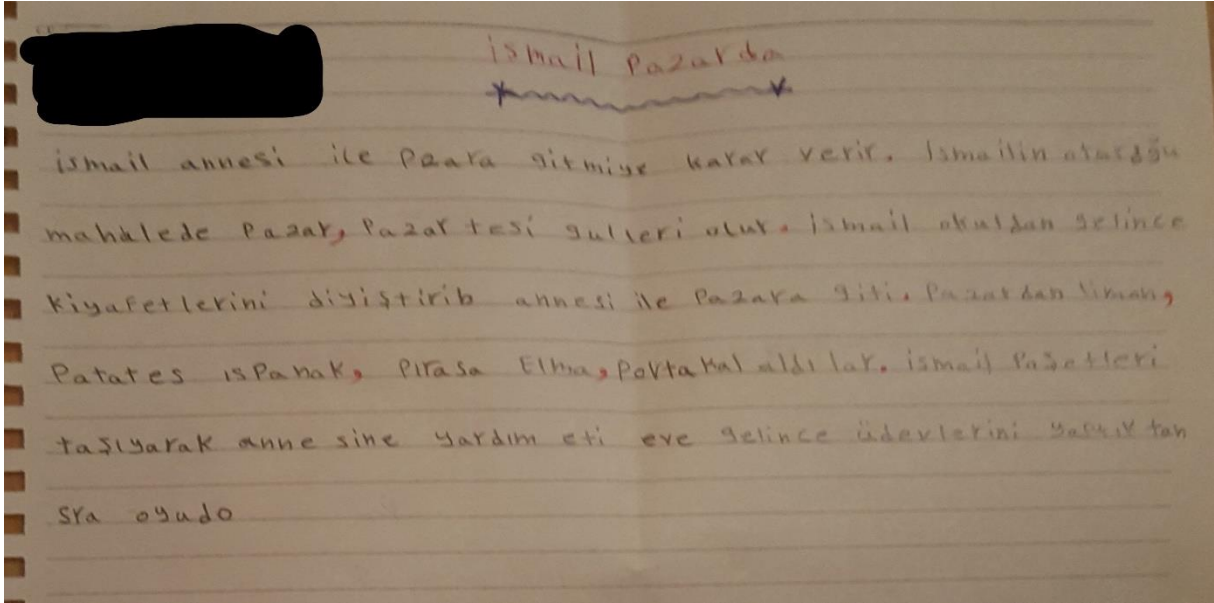 ismail Pazarda
ismail annesi ile Paara gitmiye karar verir. Ismailin
mahalede Pazar, Pazar tesi gulleri olur. ismail okuldan gelince
Kiyafetlerini diyiştirib annesi ile Pazara giti. Pazardan liman,
Patates ısPanak, Pırasa Elma, Portakal aldılar. ismail Paşetleri
taşıyarak anne sine yardım eti eve gelince üdevlerini tan
sra oyudo